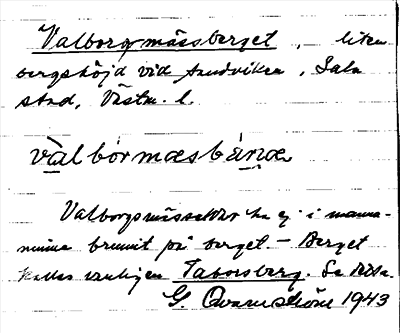 Valborgsmässberget, liten
bergshöjd vid Sandviken, Sala
stad, Västm. l.
valbormæsbærjæ
Valborgsmässeldar ha ej i manna-
minne brunnit på berget. – Berget
kallas vanligen Taborsberg. Se
G. Qvarnström 1943